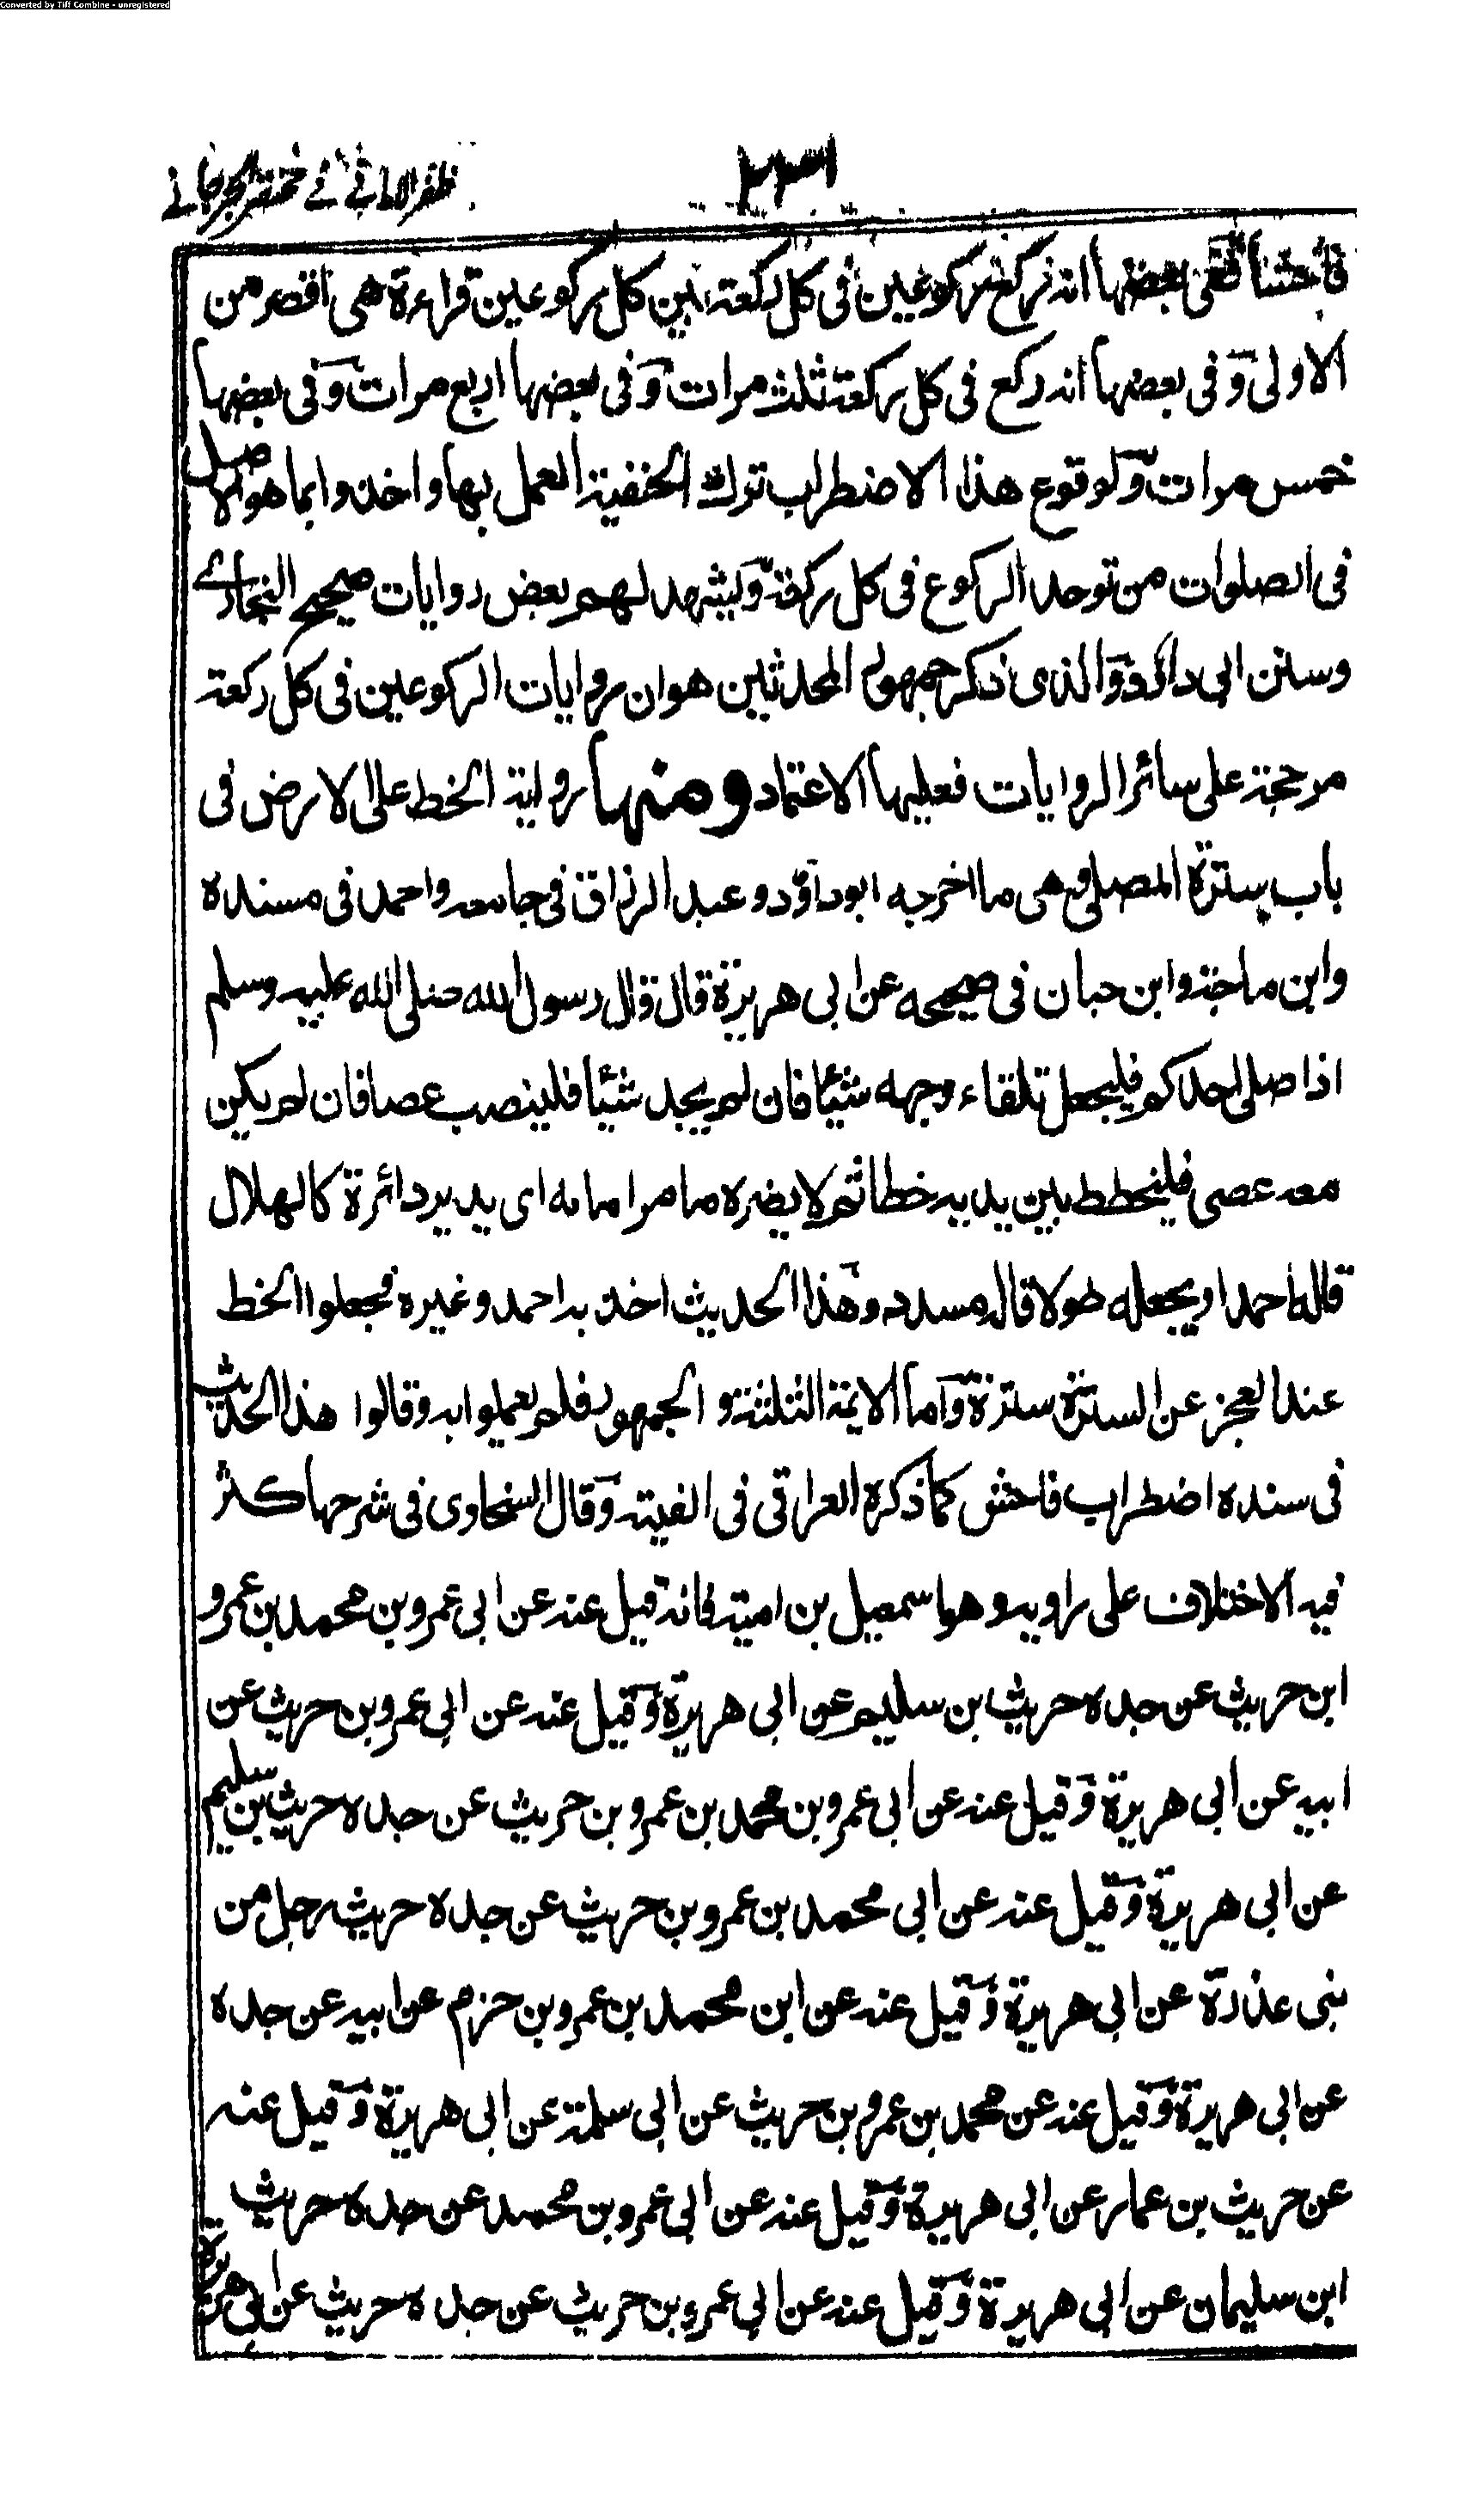 Converted by Tiff Combine - unregistered
ظفر الامانی فی مختصر الجرجانی
فاحشا ففی بعضها انه ركع ركوعين فی كل ركعة بين كل ركوعين قراءة هی اقصر من
الاولی وفی بعضها انه ركع فی كل ركعة ثلث مرات وفی بعضها اربع مرات وفی بعضها
خمس مرات ولوقوع هذا الاضطراب ترك الحنفية العمل بها واخذوا بما هو الاصل
فی الصلوات من توحد الركوع فی كل ركعة ويشهد لهم بعض روايات صحيح البخاری
وسنن ابی داؤد والذی ذكر جمهور المحدثين هو ان روايات الركوعين فی كل ركعة
مرجحة علی سائر الروايات فعليها الاعتماد ومنها رواية الخط علی الارض فی
باب سترة المصلی وهی ما اخرجه ابوداؤد وعبد الرزاق فی جامعه واحمد فی مسنده
وابن ماجة وابن حبان فی صحيحه عن ابی هريرة قال قال رسول الله صلی الله عليه وسلم
اذا صلی احدكم فليجعل تلقاء وجهه شيئا فان لم يجد شيئا فلينصب عصا فان لم يكن
معه عصی فليخطط بين يديه خطا ثم لا يضره ما مر امامه ای يدير دائرة كالهلال
قاله احمد او يجعله طولا قاله مسدد وهذا الحديث اخذ به احمد وغيره فجعلوا الخط
عند العجز عن السترة سترة واما الائمة الثلثة والجمهور فلم يعملوا به وقالوا هذا الحديث
فی سنده اضطراب فاحش كما ذكره العراقی فی الفيته وقال السخاوی فی شرحها كثر
فيه الاختلاف علی راويه وهو اسمعيل بن امية فانه قيل عنه عن ابی عمرو بن محمد بن عمرو
ابن حريث عن جده حريث بن سليم عن ابی هريرة وقيل عنه عن ابی عمرو بن حريث عن
ابيه عن ابی هريرة وقيل عنه عن ابی عمرو بن محمد بن عمرو بن حريث عن جده حريث بن سليم
عن ابی هريرة وقيل عنه عن ابی محمد بن عمرو بن حريث عن جده حريث رجل من
بنی عذرة عن ابی هريرة وقيل عنه عن ابن محمد بن عمرو بن حزم عن ابيه عن جده
عن ابی هريرة وقيل عنه عن محمد بن عمرو بن حريث عن ابی سلمة عن ابی هريرة وقيل عنه
عن حريث بن عمار عن ابی هريرة وقيل عنه عن ابی عمرو بن محمد عن جده حريث
ابن سليمان عن ابی هريرة وقيل عنه عن ابی عمرو بن حريث عن جده حريث عن ابی هريرة